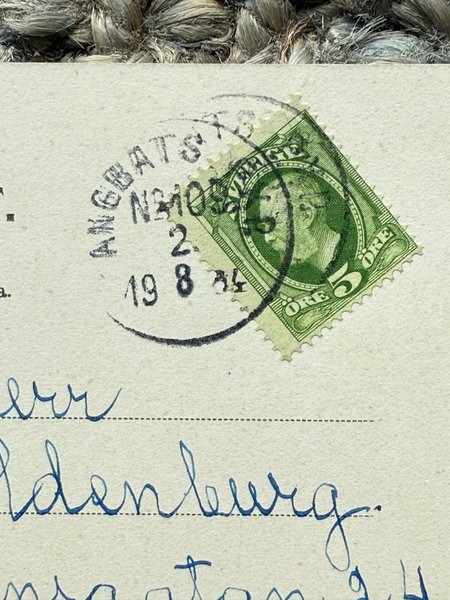 ANGBATSTS
No 103
2.
19 8 04
SVERIGE
5 ÖRE
ÖRE
a.
err
ldenburg.